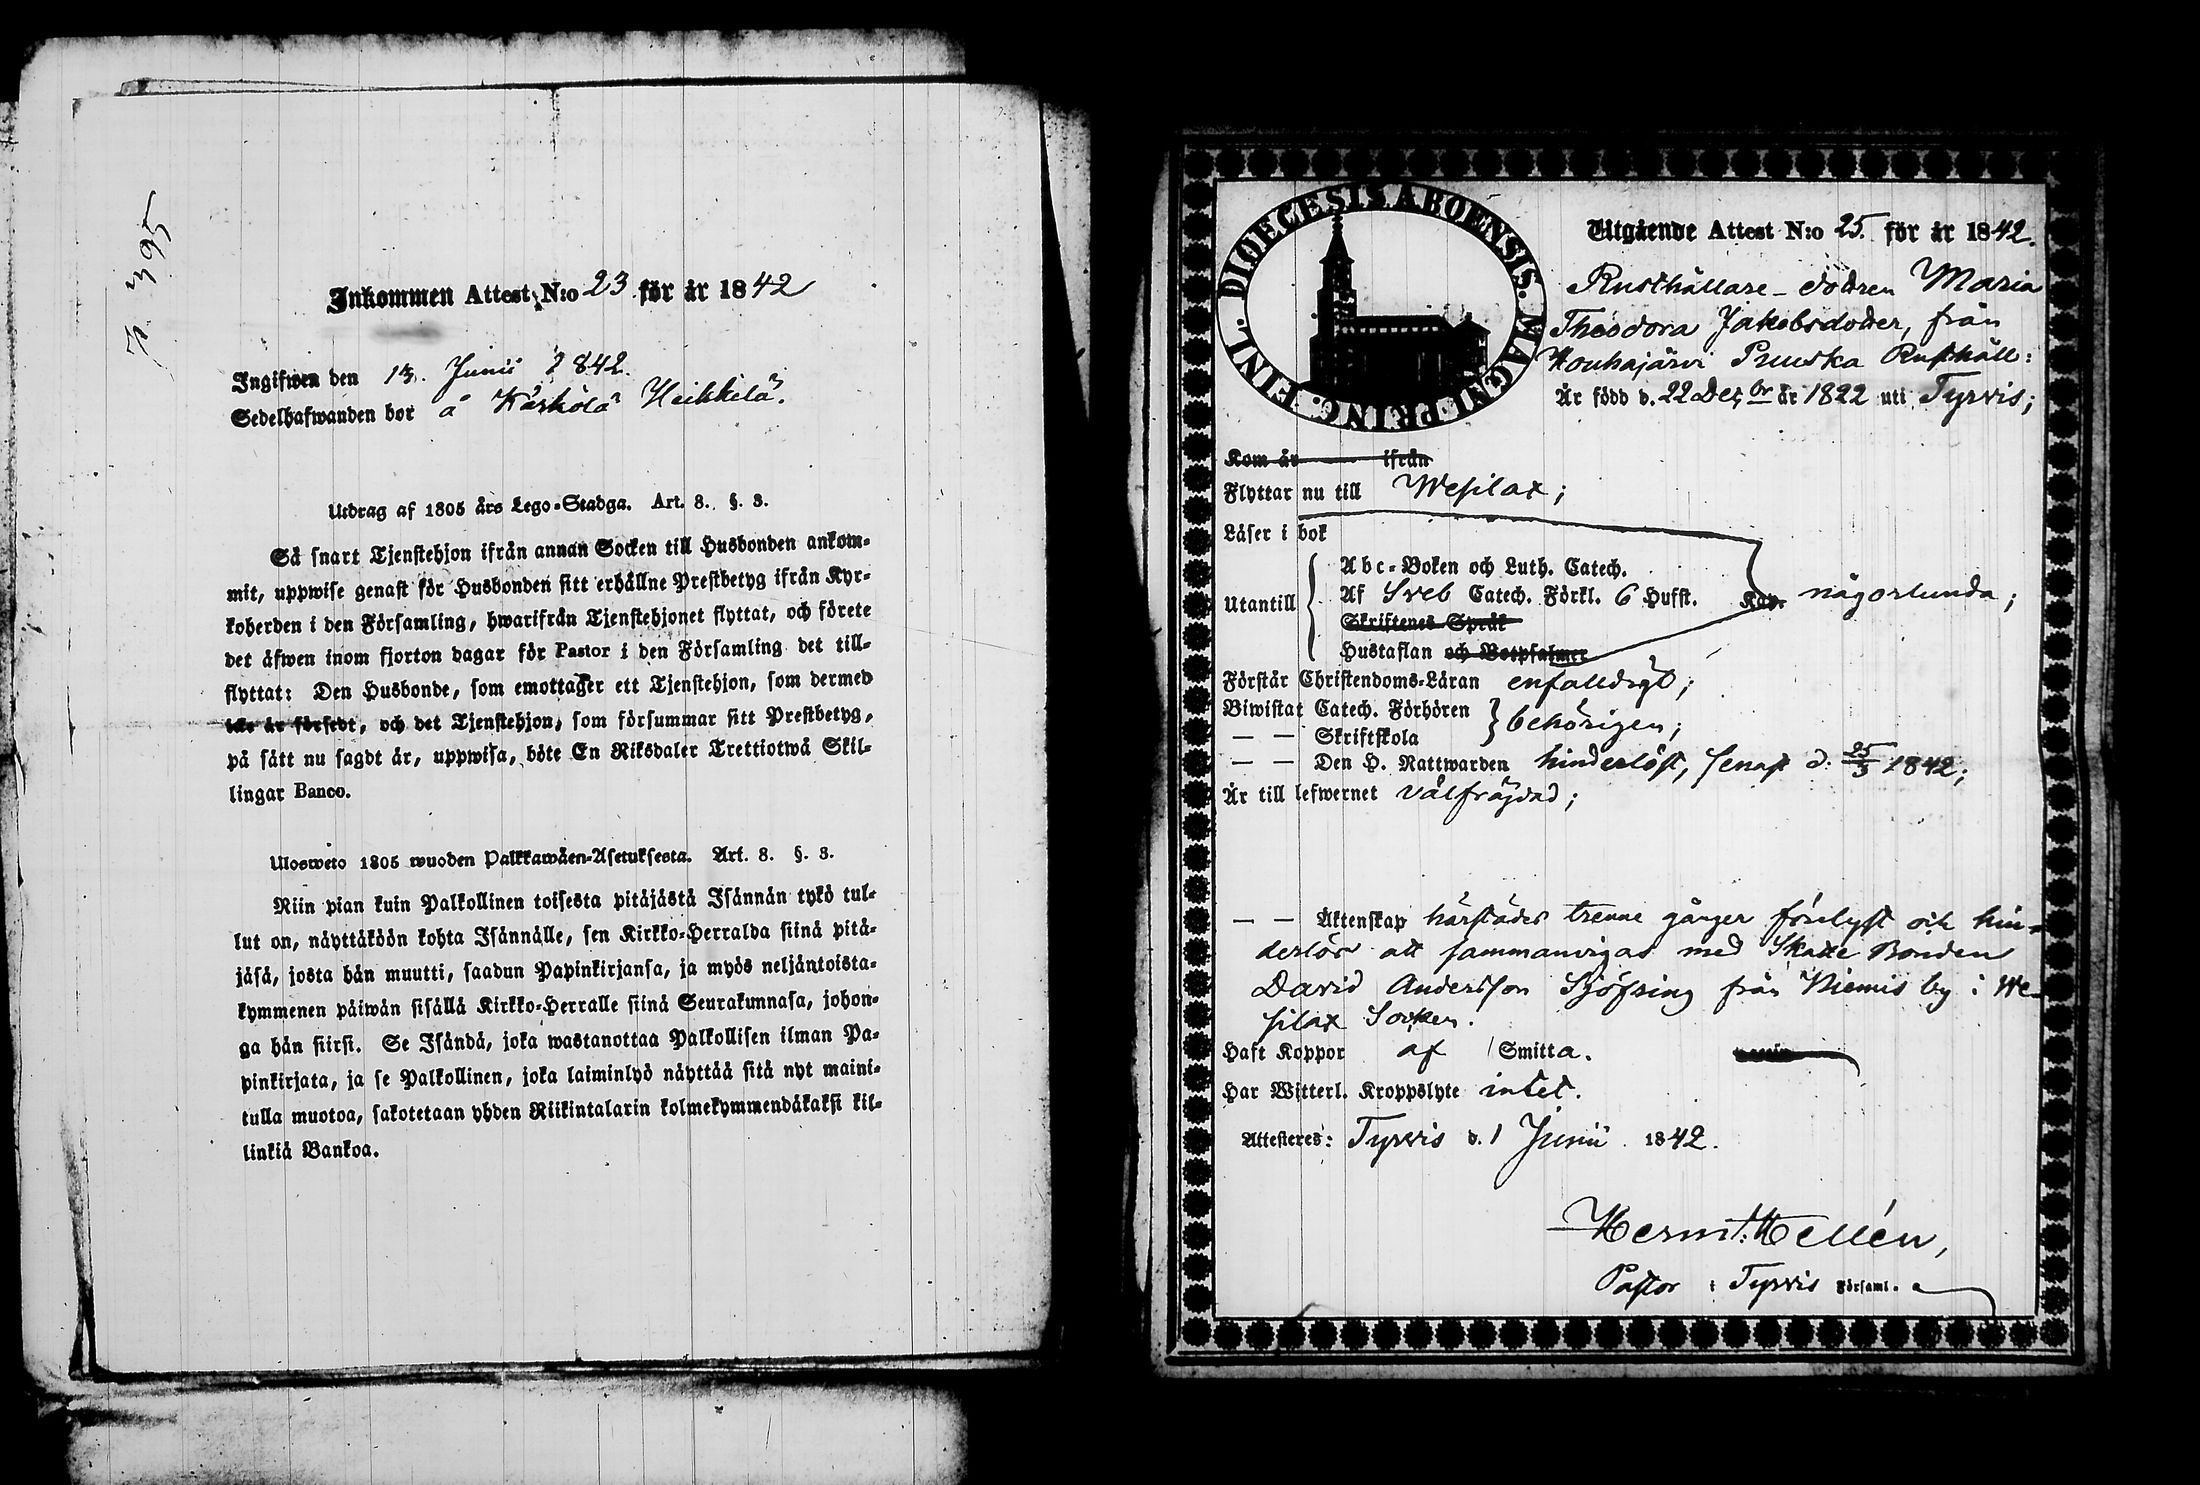 p. 395
Inkommen Attest N:o 23 för år 1842
Ingifwen den 13. Junii 1842.
Sedelhafwanden bor å Kärkölä Heikkilä.
Utdrag af 1805 års Lego-Stadga. Art. 8. §. 3.
Så snart Tjenstehjon ifrån annan Socken till Husbonden ankom-
mit, uppwise genast för Husbonden sitt erhållne Prestbetyg ifrån Kyr-
koherden i den Församling, hwarifrån Tjenstehjonet flyttat, och förete
det äfwen inom fjorton dagar för Pastor i den Församling det till-
flyttat: Den Husbonde, som emottager ett Tjenstehjon, som dermed
icke är försedt, och det Tjenstehjon, som försummar sitt Prestbetyg,
på sätt nu sagdt är, uppwisa, böte En Riksdaler Trettiotwå Skil-
lingar Banco.
Ulosweto 1805 wuoden Palkkawäen-Asetuksesta. Art. 8. §. 3.
Niin pian kuin Palkollinen toisesta pitäjästä Isännän tykö tul-
lut on, näyttäköön kohta Isännälle, sen Kirkko-Herralda siinä pitä-
jäsä, josta hän muutti, saadun Papinkirjansa, ja myös neljäntoista-
kymmenen päiwän sisällä Kirkko-Herralle siinä Seurakunnasa, johon-
ga hän siirsi. Se Isändä, joka wastanottaa Palkollisen ilman Pa-
pinkirjata, ja se Palkollinen, joka laiminlyö näyttää sitä nyt maini-
tulla muotoa, sakotetaan yhden Riikintalarin kolmekymmendäkaksi kil-
linkiä Bankoa.
DIOECESIS ABOENSIS. MAGNI PRINC. FINL.
Utgående Attest N:o 25. för år 1842.
Rusthållare-dottren Maria
Theodora Jakobsdotter, från
Houhajärvi Pruuska Rusthåll:
Är född d. 22 Dec:br år 1822 uti Tyrvis;
Kom år ifrån
Flyttar nu till Wesilax;
Läser i bok
Abc-Boken och Luth. Catech.
Utantill Af Sveb Catech. Förkl. 6 Hufst. Kap. någorlunda;
Skriftenes Språk
Hustaflan och Botpsalmer
Förstår Christendoms-Läran enfaldigt;
Biwistat Catech. Förhören behörigen;
— — Skriftskola
— — Den H. Nattwarden hinderlöst, senast d. 25/3 1842;
Är till lefwernet välfrägdad;
— — Äktenskap härstädes trenne gånger förelyst och hin-
derlös att sammanvigas med Skatte Bonden
David Andersson Sjöfring från Niemis by i We-
silax Socken.
Haft Koppor af Smitta.
Har Witterl. Kroppslyte intet.
Attesteres: Tyrvis d. 1 Junii 1842.
Herm: Hellén,
Pastor i Tyrvis Församl.